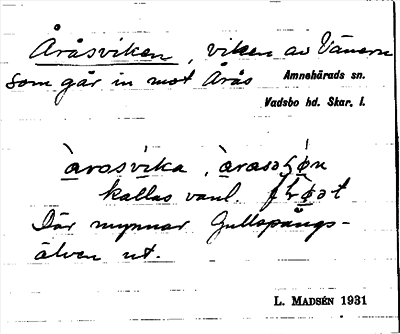 Åråsviken, viken av Vänern
som går in mot Årås Amnehärads sn.
Vadsbo hd. Skar. l.
àrosvika,
kallas vanl.
Där mynnar Gullspångs-
älven ut.
L. MADSÉN 1931